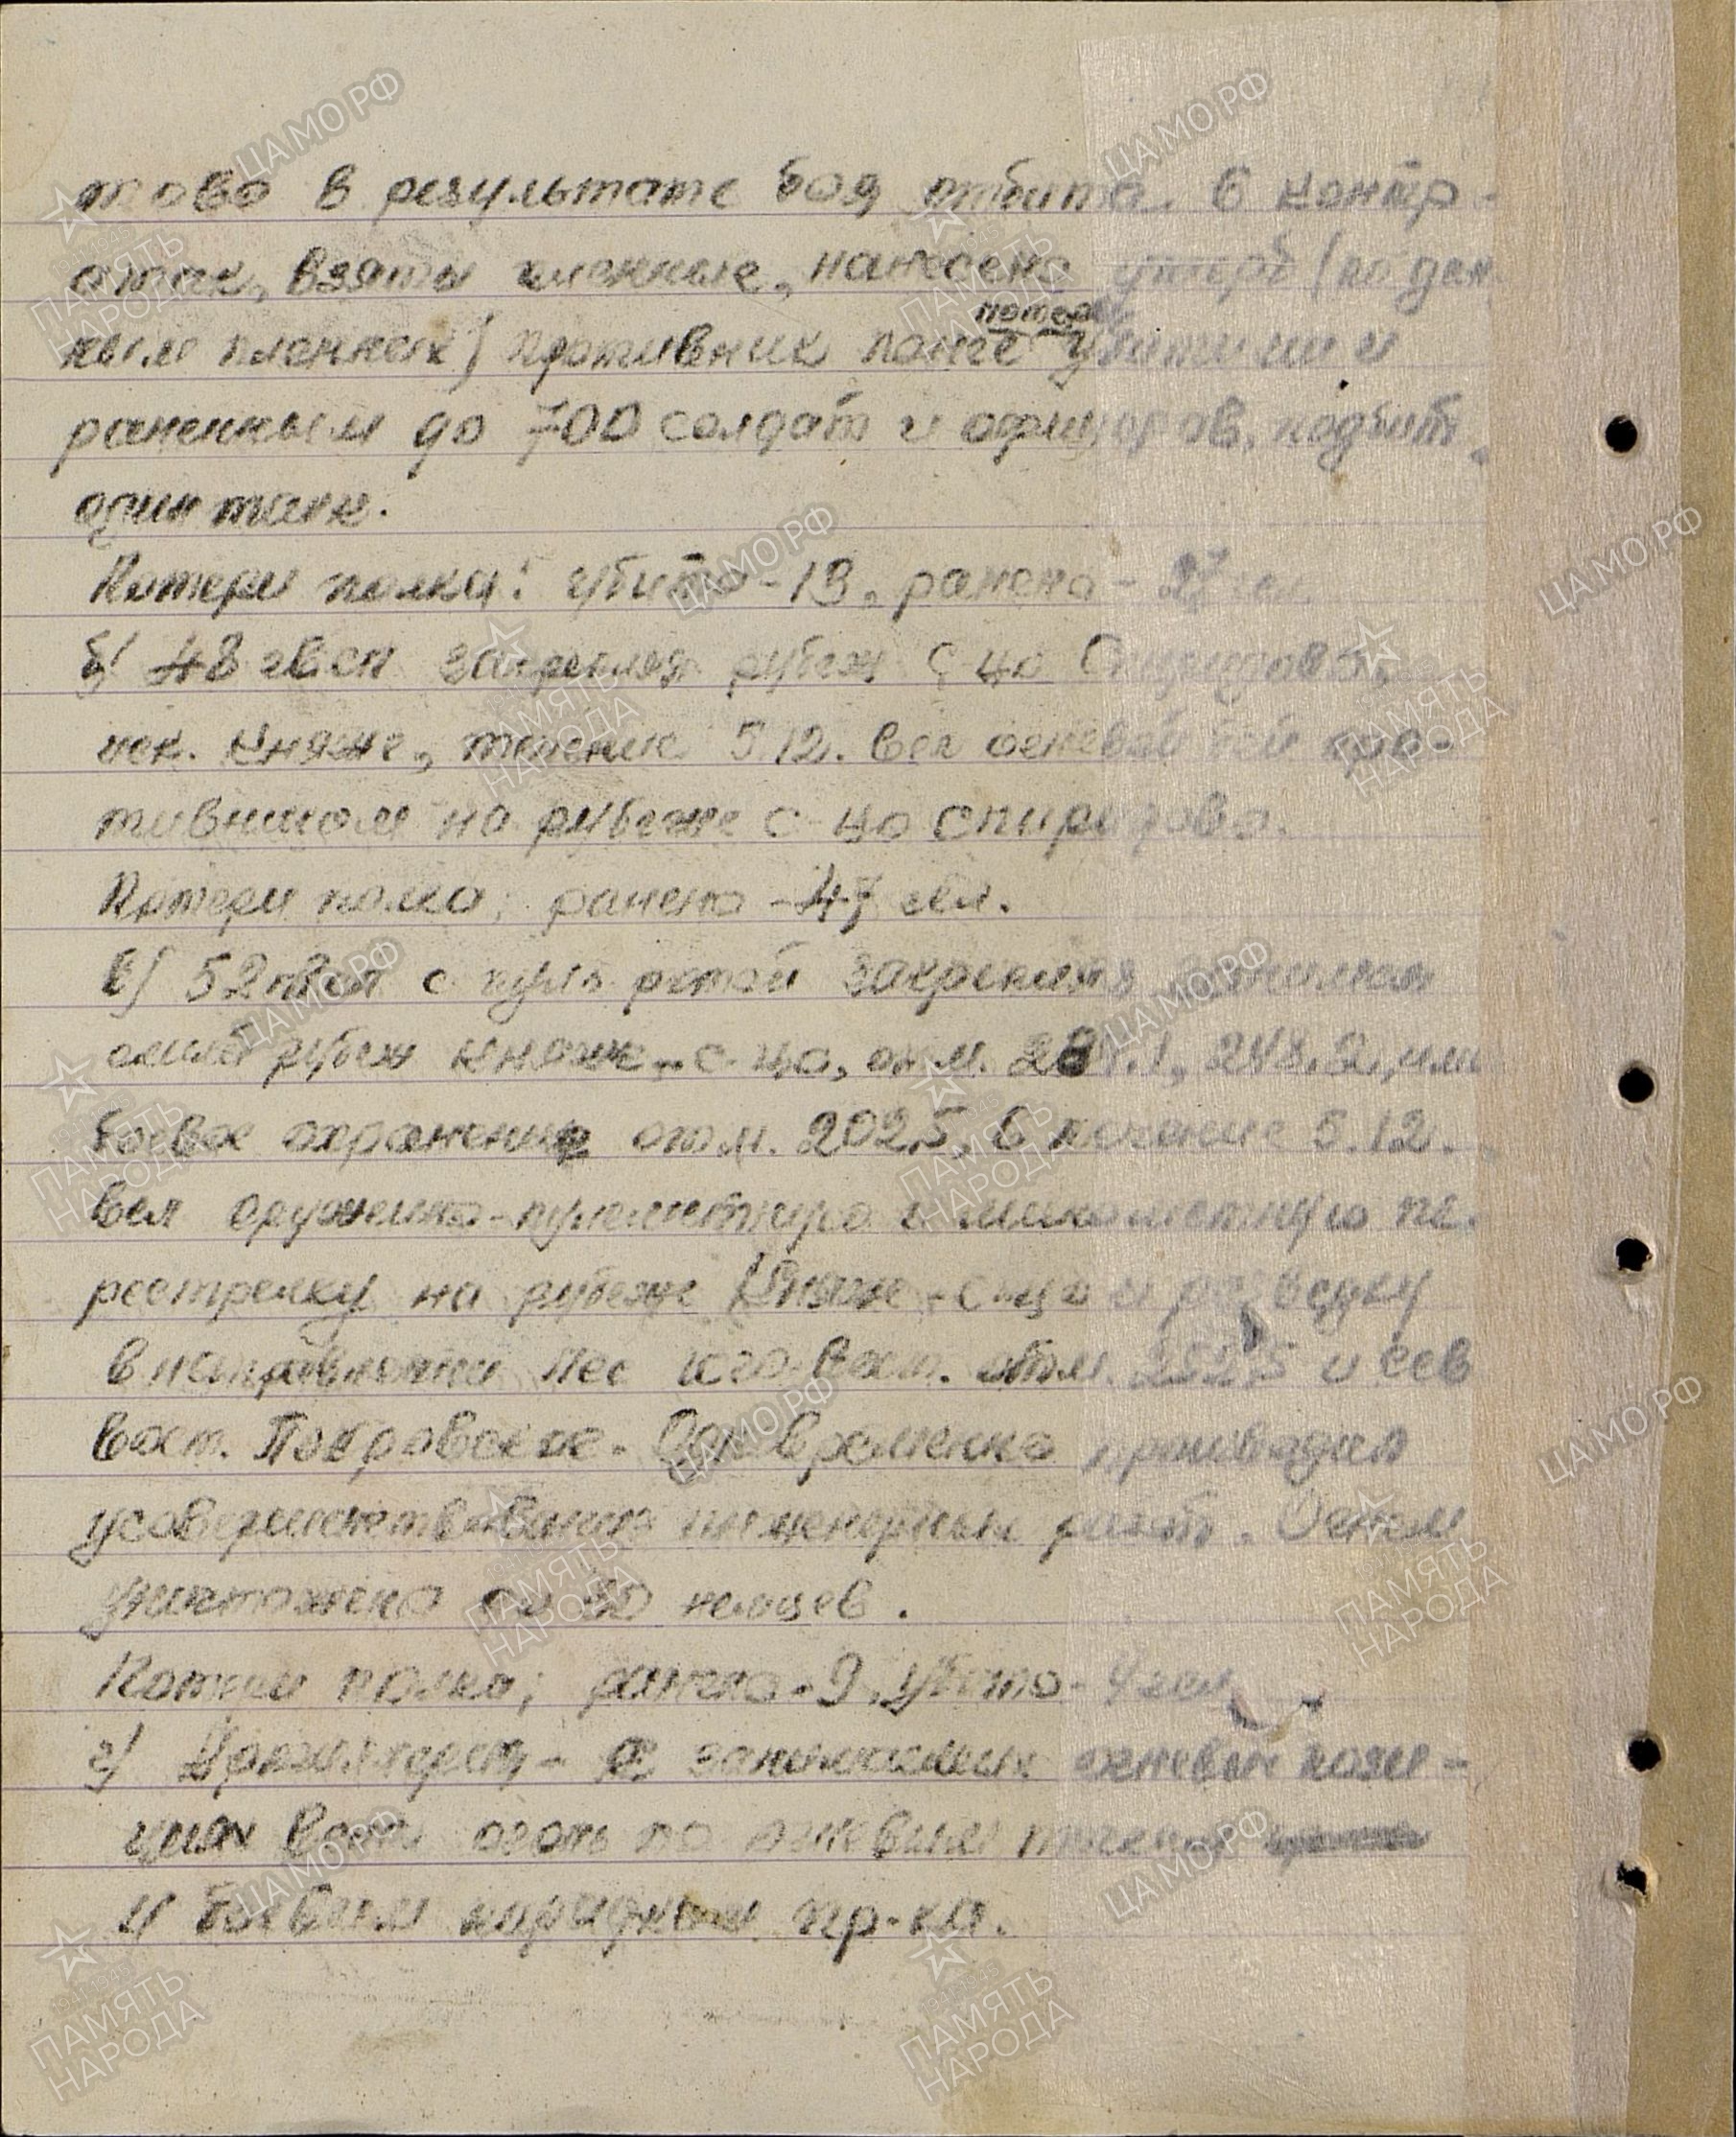 тово в результате боя отбита 6 контр-
атак, взяты пленные, нанесено ущерб (по дан
ным пленных) противник понес потери убитыми и
раненным до 700 солдат и офицеров, подбит
один танк.
Потери полка: убито - 13, ранено - 27 чел.
б) 48 гвсп закрепляя рубеж с-ца Спиридово,
иск. Княже, течение 5.12. вел огневой бой про-
тивником на рубеже с-ца Спиридово.
Потери полка; ранено - 47 чел.
в) 52 гвсп с пульротой закрепляя занимая
рубеж Княже - с-ца, отм. 248.2, им
боевое охранение отм. 202,5. В течение 5.12.
вел оружейно-пулеметную и минометную пе-
рестрелку на рубеже Княже - с-ца и разведку
в направлении лес юго-вост. отм. 252,5 и сев
вост. Покровское. Одновременно производил
усовершенствование инженерных работ. Огнем
уничтожено до 30 немцев.
Потери полка; ранено - 9, убито - 4 чел.
г) Артиллерия - с занимаемых огневых пози-
ций вела огонь по огневым точкам
и боевым порядкам пр-ка.
ЦАМО.РФ
ПАМЯТЬ
НАРОДА